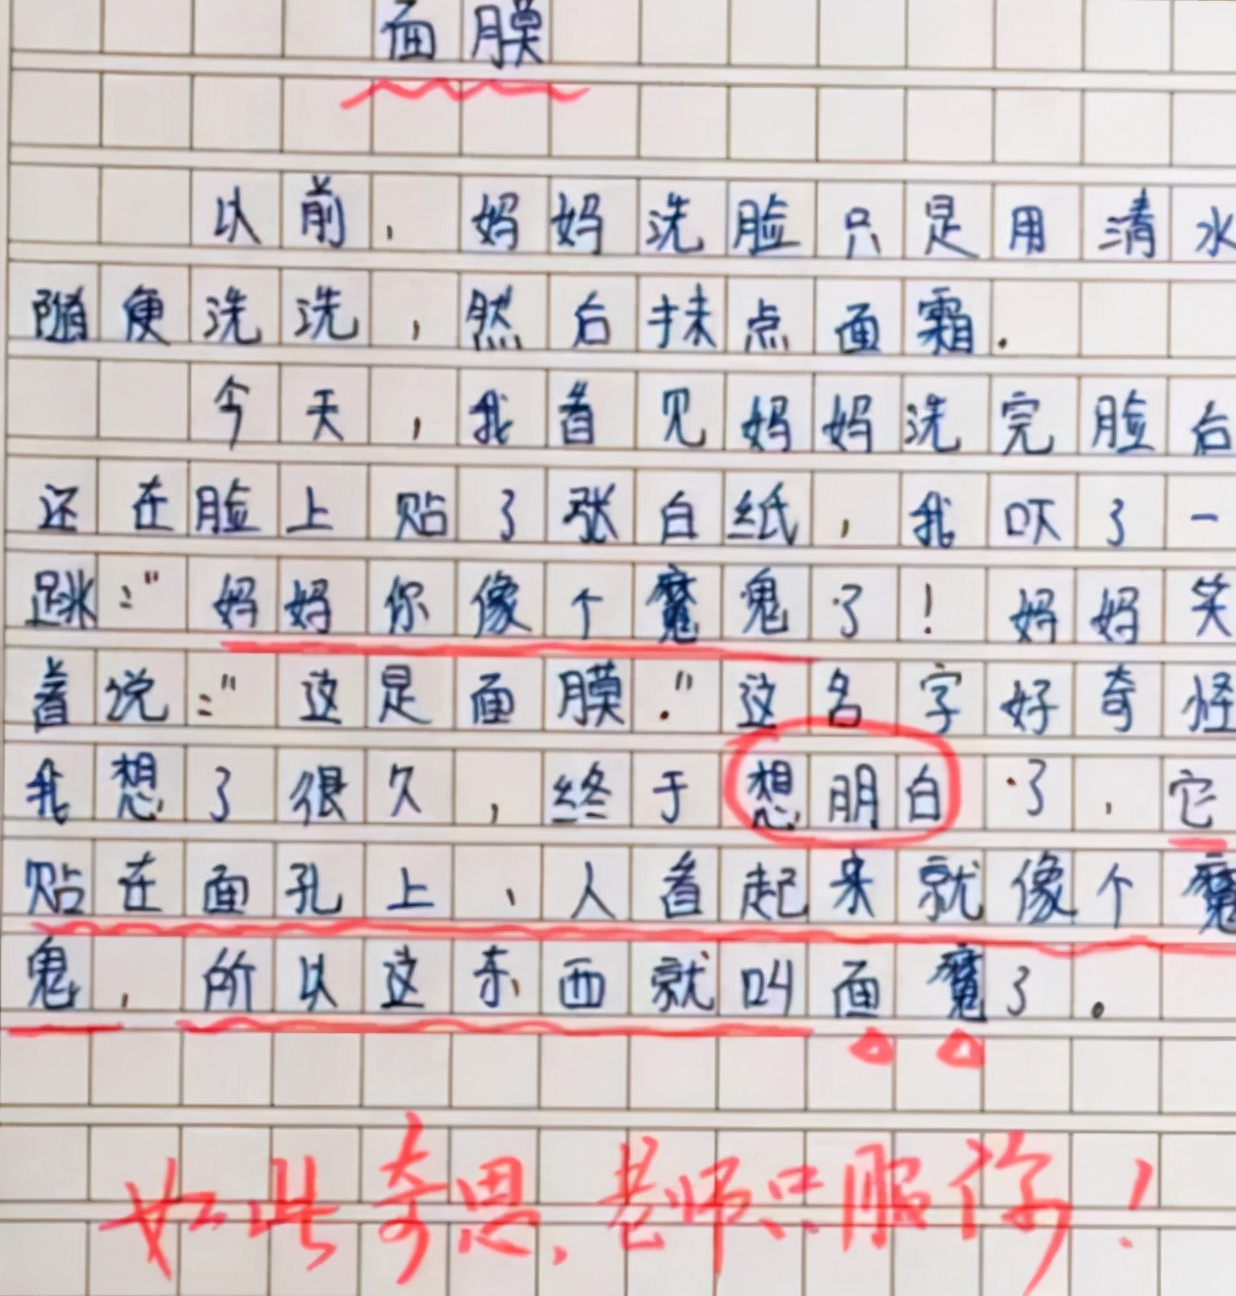 面膜
以前，妈妈洗脸只是用清水
随便洗洗，然后抹点面霜.
今天，我看见妈妈洗完脸后
还在脸上贴了张白纸，我吓了一
跳:"妈妈你像个魔鬼了！妈妈笑
着说:"这是面膜."这名字好奇怪
我想了很久，终于想明白了，它
贴在面孔上、人看起来就像个魔
鬼，所以这东西就叫面魔了。
如此奇思,老师只服你！